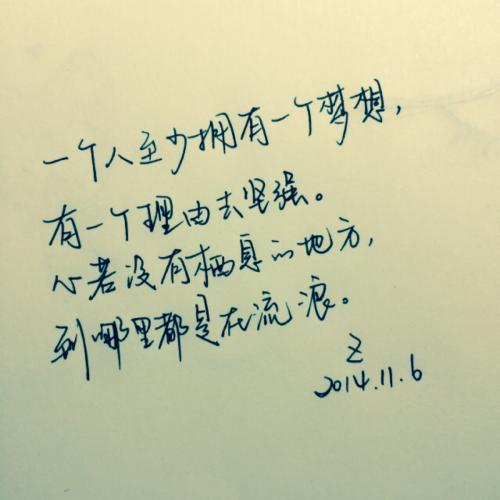 一个人至少拥有一个梦想,
有一个理由去坚强。
心若没有栖息的地方,
到哪里都是在流浪。
Z
2014.11.6